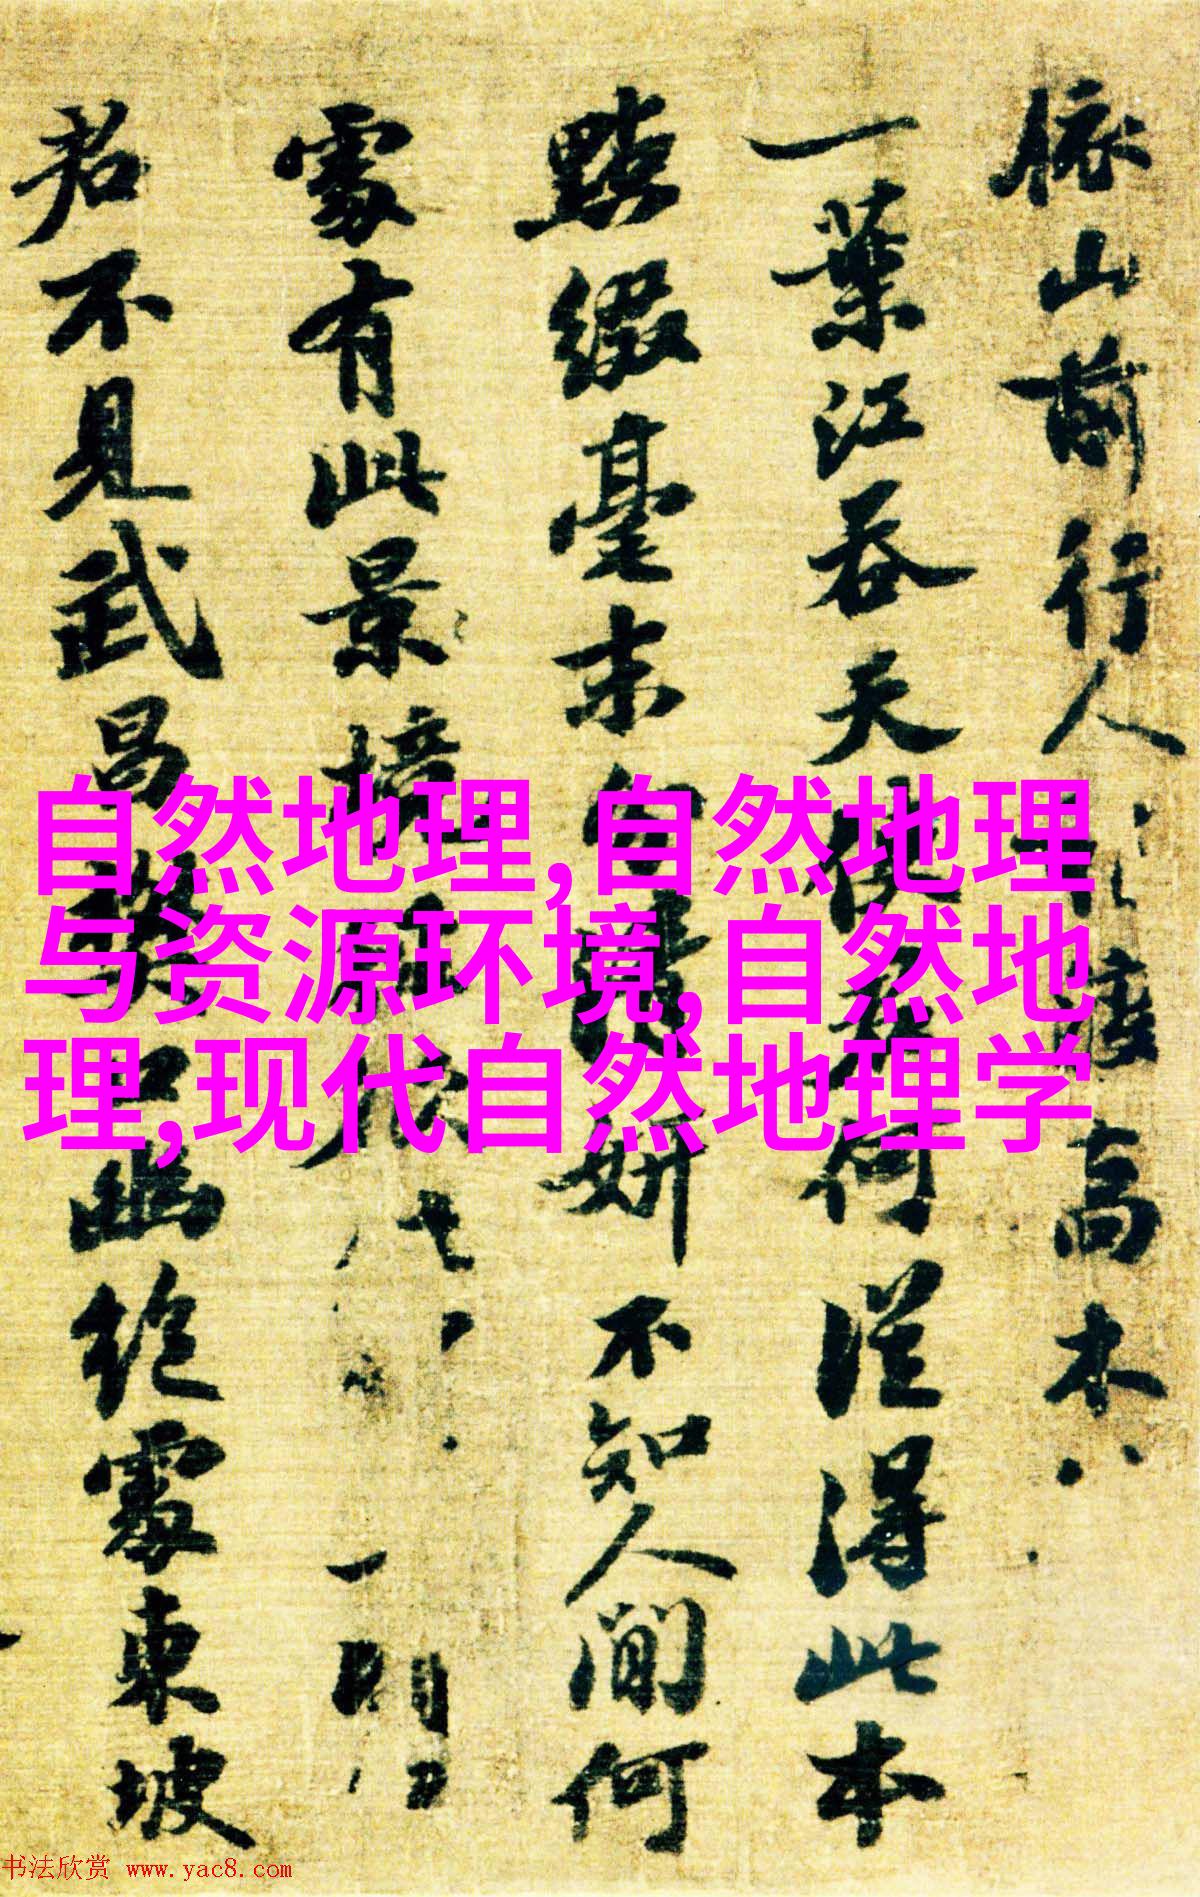 山前行人度高木
一葉江吞天使君何從得此本
點綴毫末分清妍不知人間何
處有此景徑
君不見武昌樊口幽絕處東坡
自然地理,自然地理
与资源环境,自然地
理,现代自然地理学
书法欣赏 www.yac8.com